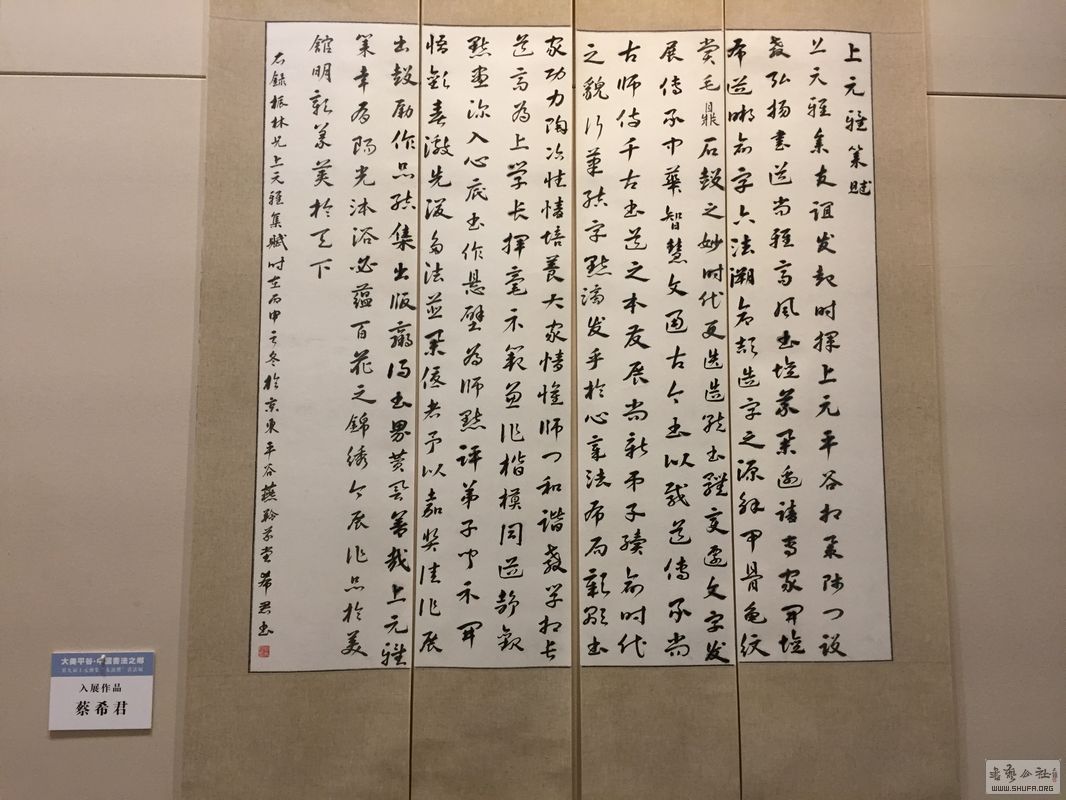 上元雅集赋
上元雅集友谊发起时择上元平谷相聚陈门设
教弘扬书道尚雅高风书坛荟聚邀请专家开坛
布道晰俞字六法溯仓颉造字之源解甲骨龟纹
赏毛鼎石鼓之妙时代更迭造就书体变迁文字发
展传承中华智慧文通古今书以载道传承尚
古师传千古书道之本发展尚新弟子续俞时代
之貌行笔结字点滴发乎于心章法布局彰显书
家功力陶冶性情培养大家情怀师门和谐教学相长
道高为上学长挥毫示范兼作楷模同道静观
点画深入心底书作悬壁为师点评弟子中示开
悟虽春激先后白法并举优者予以嘉奖佳作展
出鼓励作品结集出版赢得书界赞誉善哉上元雅
集幸有阳光沐浴必蕴百花之锦绣今展作品于美
馆明彰美于天下
右录振林兄上元雅集赋时在丙申之冬于京东平谷燕翰万堂希君书
大美平谷·中国书法之乡
入展作品
蔡希君
书艺公社
WWW.SHUFA.ORG